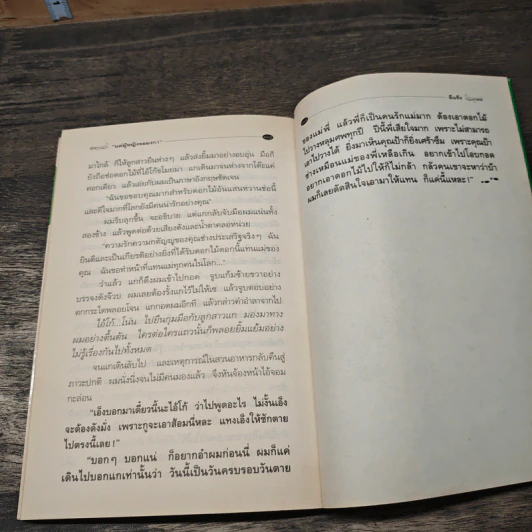 มาใกล้ ก็ให้ลูกสาวยืนห่างๆ แล้วส่งยิ้มมาอย่างอบอุ่น มือก็
ยังถือช่อดอกไม้ที่ไอ้โก้ขโมยมา แกเดินมาจนห่างจากโต๊ะแค่
คอกเดียว แล้วเอ่ยกับผมเป็นภาษาอังกฤษชัดเจน
"ฉันขอขอบคุณมากสำหรับดอกไม้อันแสนหวานช่อนี้
และดีใจมากที่โลกยังมีคนน่ารักอย่างคุณ"
ผมรีบลุกขึ้น จะอธิบาย แต่แกกลับจับมือผมแน่นทั้ง
สองข้าง แล้วพูดต่อด้วยเสียงดังและน้ำตาคลอหน่วย
"ความรักความกตัญญูของคุณช่างประเสริฐจริงๆ ฉัน
ยินดีและเป็นเกียรติอย่างยิ่งที่ได้รับดอกไม้ดอกนี้แทนแม่ของ
คุณ ฉันขอทำหน้าที่แทนแม่ทุกคนในโลก..."
ว่าแล้ว แกก็ดึงผมเข้าไปกอด จูบแก้มซ้ายขวาอย่าง
บรรจงดังจ๊วบ ผมเลยต้องรั้งแกไว้ไม่ให้เซ แล้วจูบตอบอย่าง
ตกกระไดพลอยโจน แกกอดผมอีกที แล้วกล่าวคำอำลาจากไป
ไอ้โก้...โน่น ไปยืนกุมมือกับลูกสาวแก มองมาทาง
ผมอย่างตื้นตัน ใครต่อใครแถวนั้นก็พลอยยิ้มแย้มอย่าง
ไม่รู้เรื่องกันไปทั้งหมด
จนแกเดินลับไป และเหตุการณ์ในสวนอาหารกลับคืนสู่
ภาวะปกติ ผมนั่งนิ่งจนไม่มีคนมองแล้ว จึงหันจ้องหน้าไอ้จอม
กะล่อน
"เอ็งบอกมาเดี๋ยวนี้นะไอ้โก้ ว่าไปพูดอะไร ไม่งั้นเอ็ง
จะต้องดังมั่ง เพราะกูจะเอาส้อมนี่หละ แทงเอ็งให้ชักตาย
ไปตรงนี้เลย!"
"บอกๆ บอกแน่ ก็อยากอำผมก่อนนี่ ผมก็แค่
เดินไปบอกแกเท่านั้นว่า วันนี้เป็นวันครบรอบวันตาย
ของแม่พี่ แล้วพี่ก็เป็นคนรักแม่มาก ต้องเอาดอกไม้
ไปวางหลุมศพทุกปี ปีนี้พี่เสียใจมาก เพราะไม่สามารถ
เอาไปวางได้ ยิ่งมาเห็นคุณป้าก็ยิ่งเศร้าซึ้ง เพราะคุณป้า
ช่างเหมือนแม่ของพี่เหลือเกิน อยากเข้าไปโอบกอด
อยากเอาดอกไม้ไปให้ก็ไม่กล้า กลัวคนเขาจะหาว่าบ้า
ผมก็เลยตัดสินใจเอามาให้แทน ก็แค่นี้แหละ!"